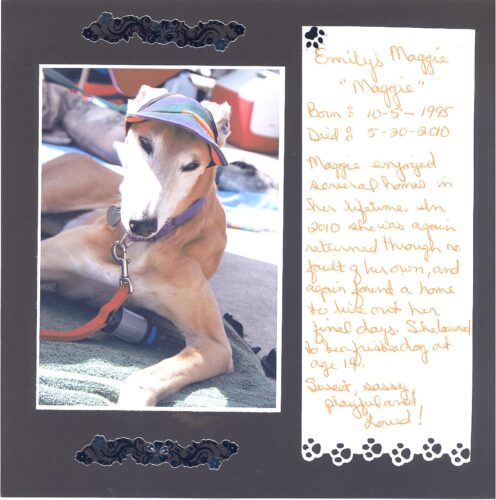 Emily's Maggie
"Maggie"
Born: 10-5-1995
Died: 5-20-2010
Maggie enjoyed
several homes in
her lifetime. In
2010 she was again
returned through no
fault of her own, and
again found a home
to live out her
final days. She learned
to be a frisbee dog at
age 14.
Sweet, sassy,
playful and
Loved!